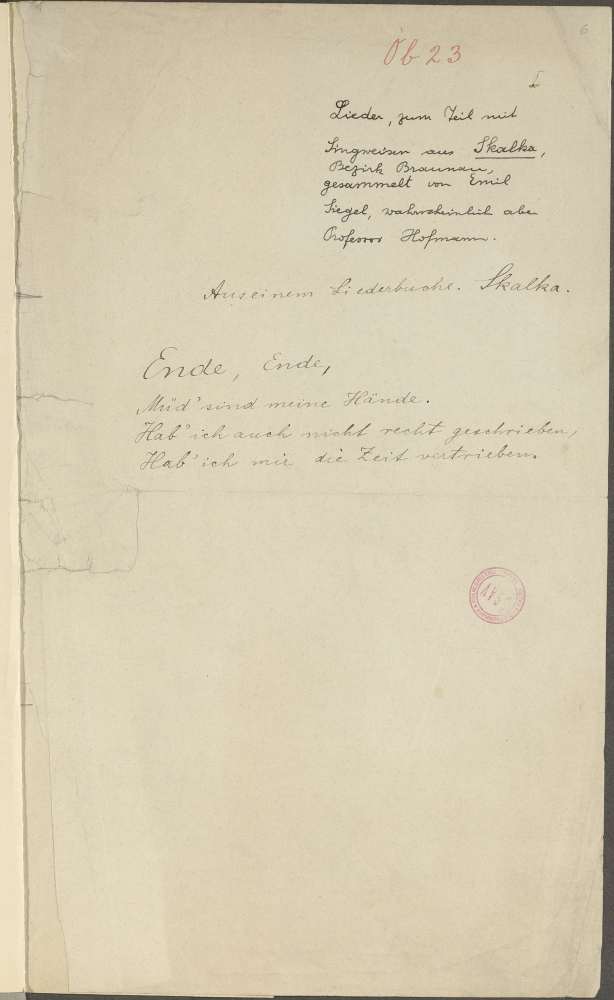 6
Öb 23
I
Lieder, zum Teil mit
Singweisen aus Skalka,
Bezirk Braunau,
gesammelt von Emil
Siegel, wahrscheinlich aber
Professor Hofmann.
Aus einem Liederbuche. Skalka.
Ende, Ende,
Müd' sind meine Hände.
Hab' ich auch nicht recht geschrieben,
Hab' ich mir die Zeit vertrieben.